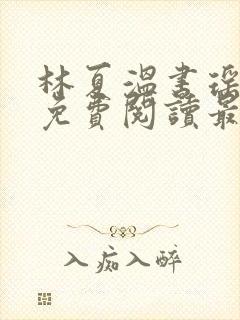 林夏溫書瑤
免費閱讀最
入痴入醉